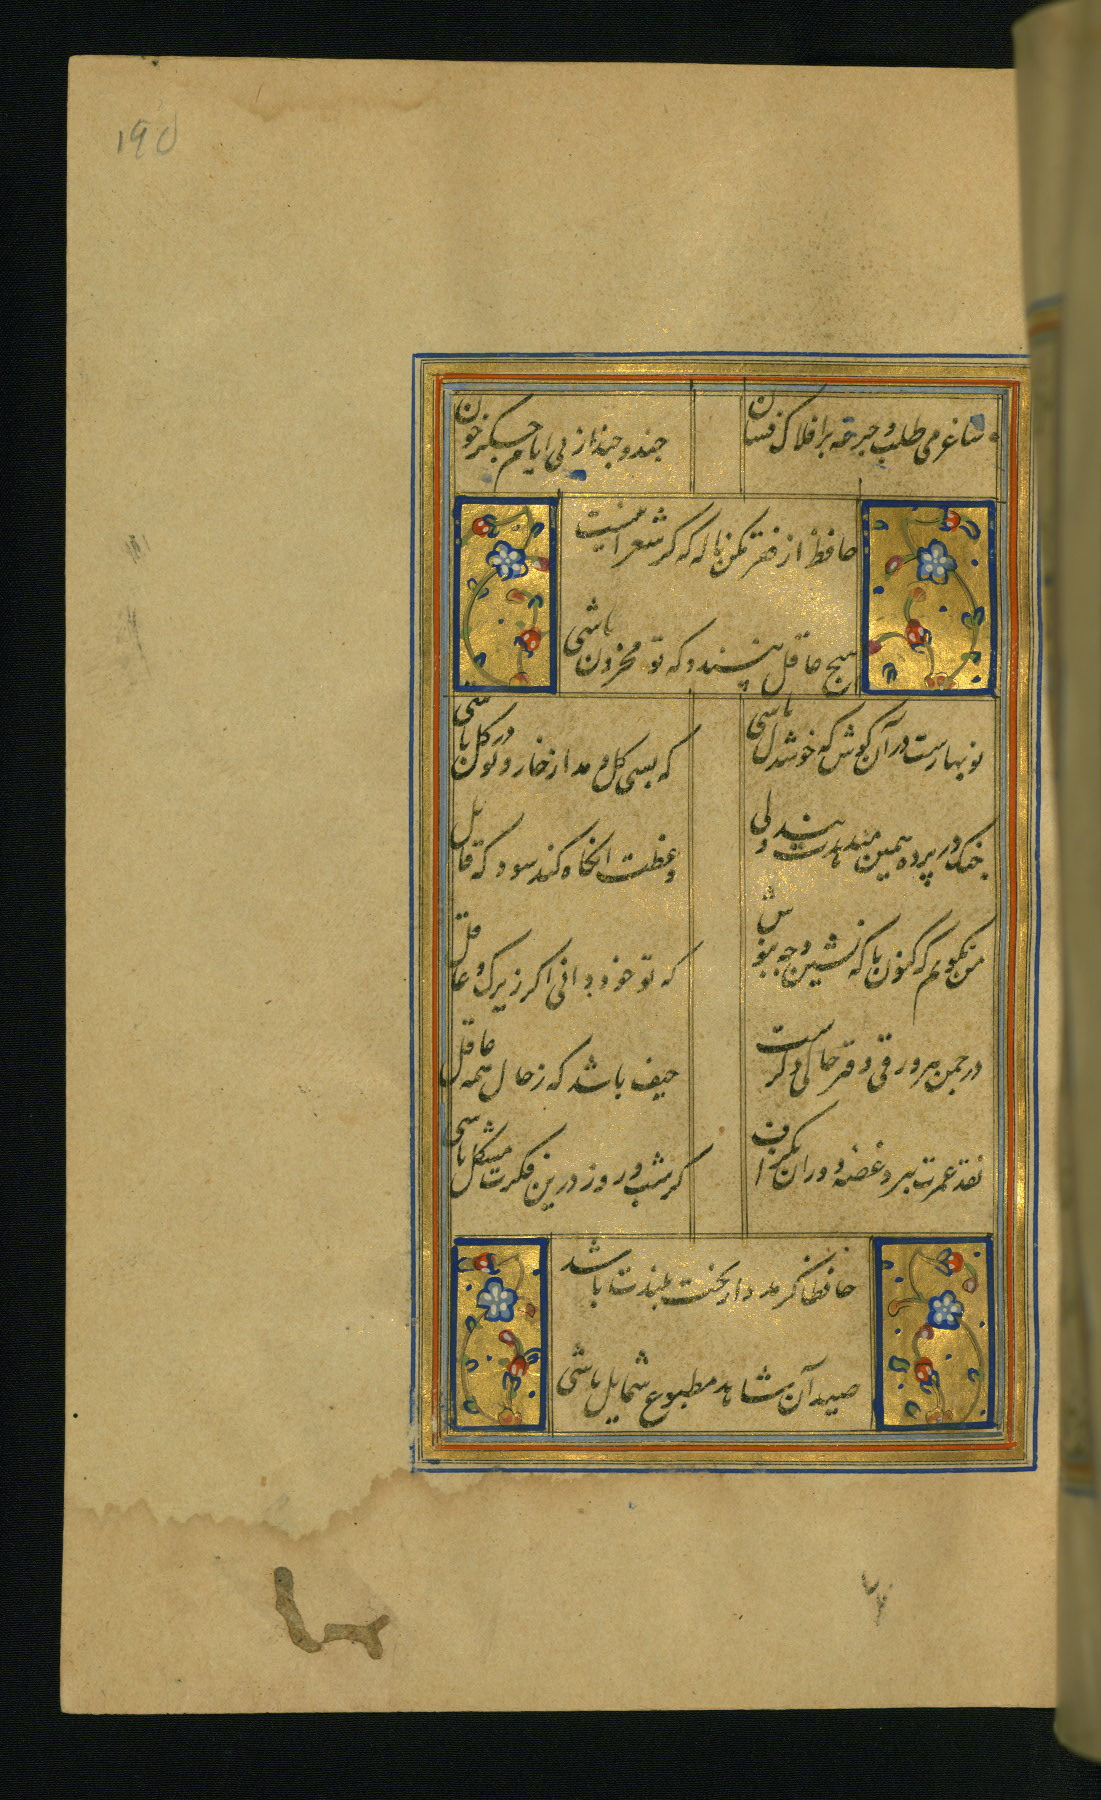 ۱۹۵
ساغر می طلب و جرعه بر افلاک فشان
چند و چند از پی ایام جکر خون
حافظ از فقر مکن ناله که کر شعر اینست
هیچ عاقل نپسندد که تو محزون باشی
نوبهارست در آن کوش که خوشدل باشی
که بسی کل دمد از خار و تو در کل باشی
چنک در پرده همین میدهدت پند ولی
وعظت آنکاه کند سود که قابل
من نکویم که کنون با که نشین و چه بنوش
که تو خود دانی اکر زیرک و عاقل
در چمن هر ورقی دفتر حالی دکرست
حیف باشد که ز حال همه غافل
نقد عمرت ببرد غصه دوران بکزاف
کر شب و روز درین فکرت مشکل باشی
حافظا کر مدد از بخت بلندت باشد
صید آن شاهد مطبوع شمایل باشی